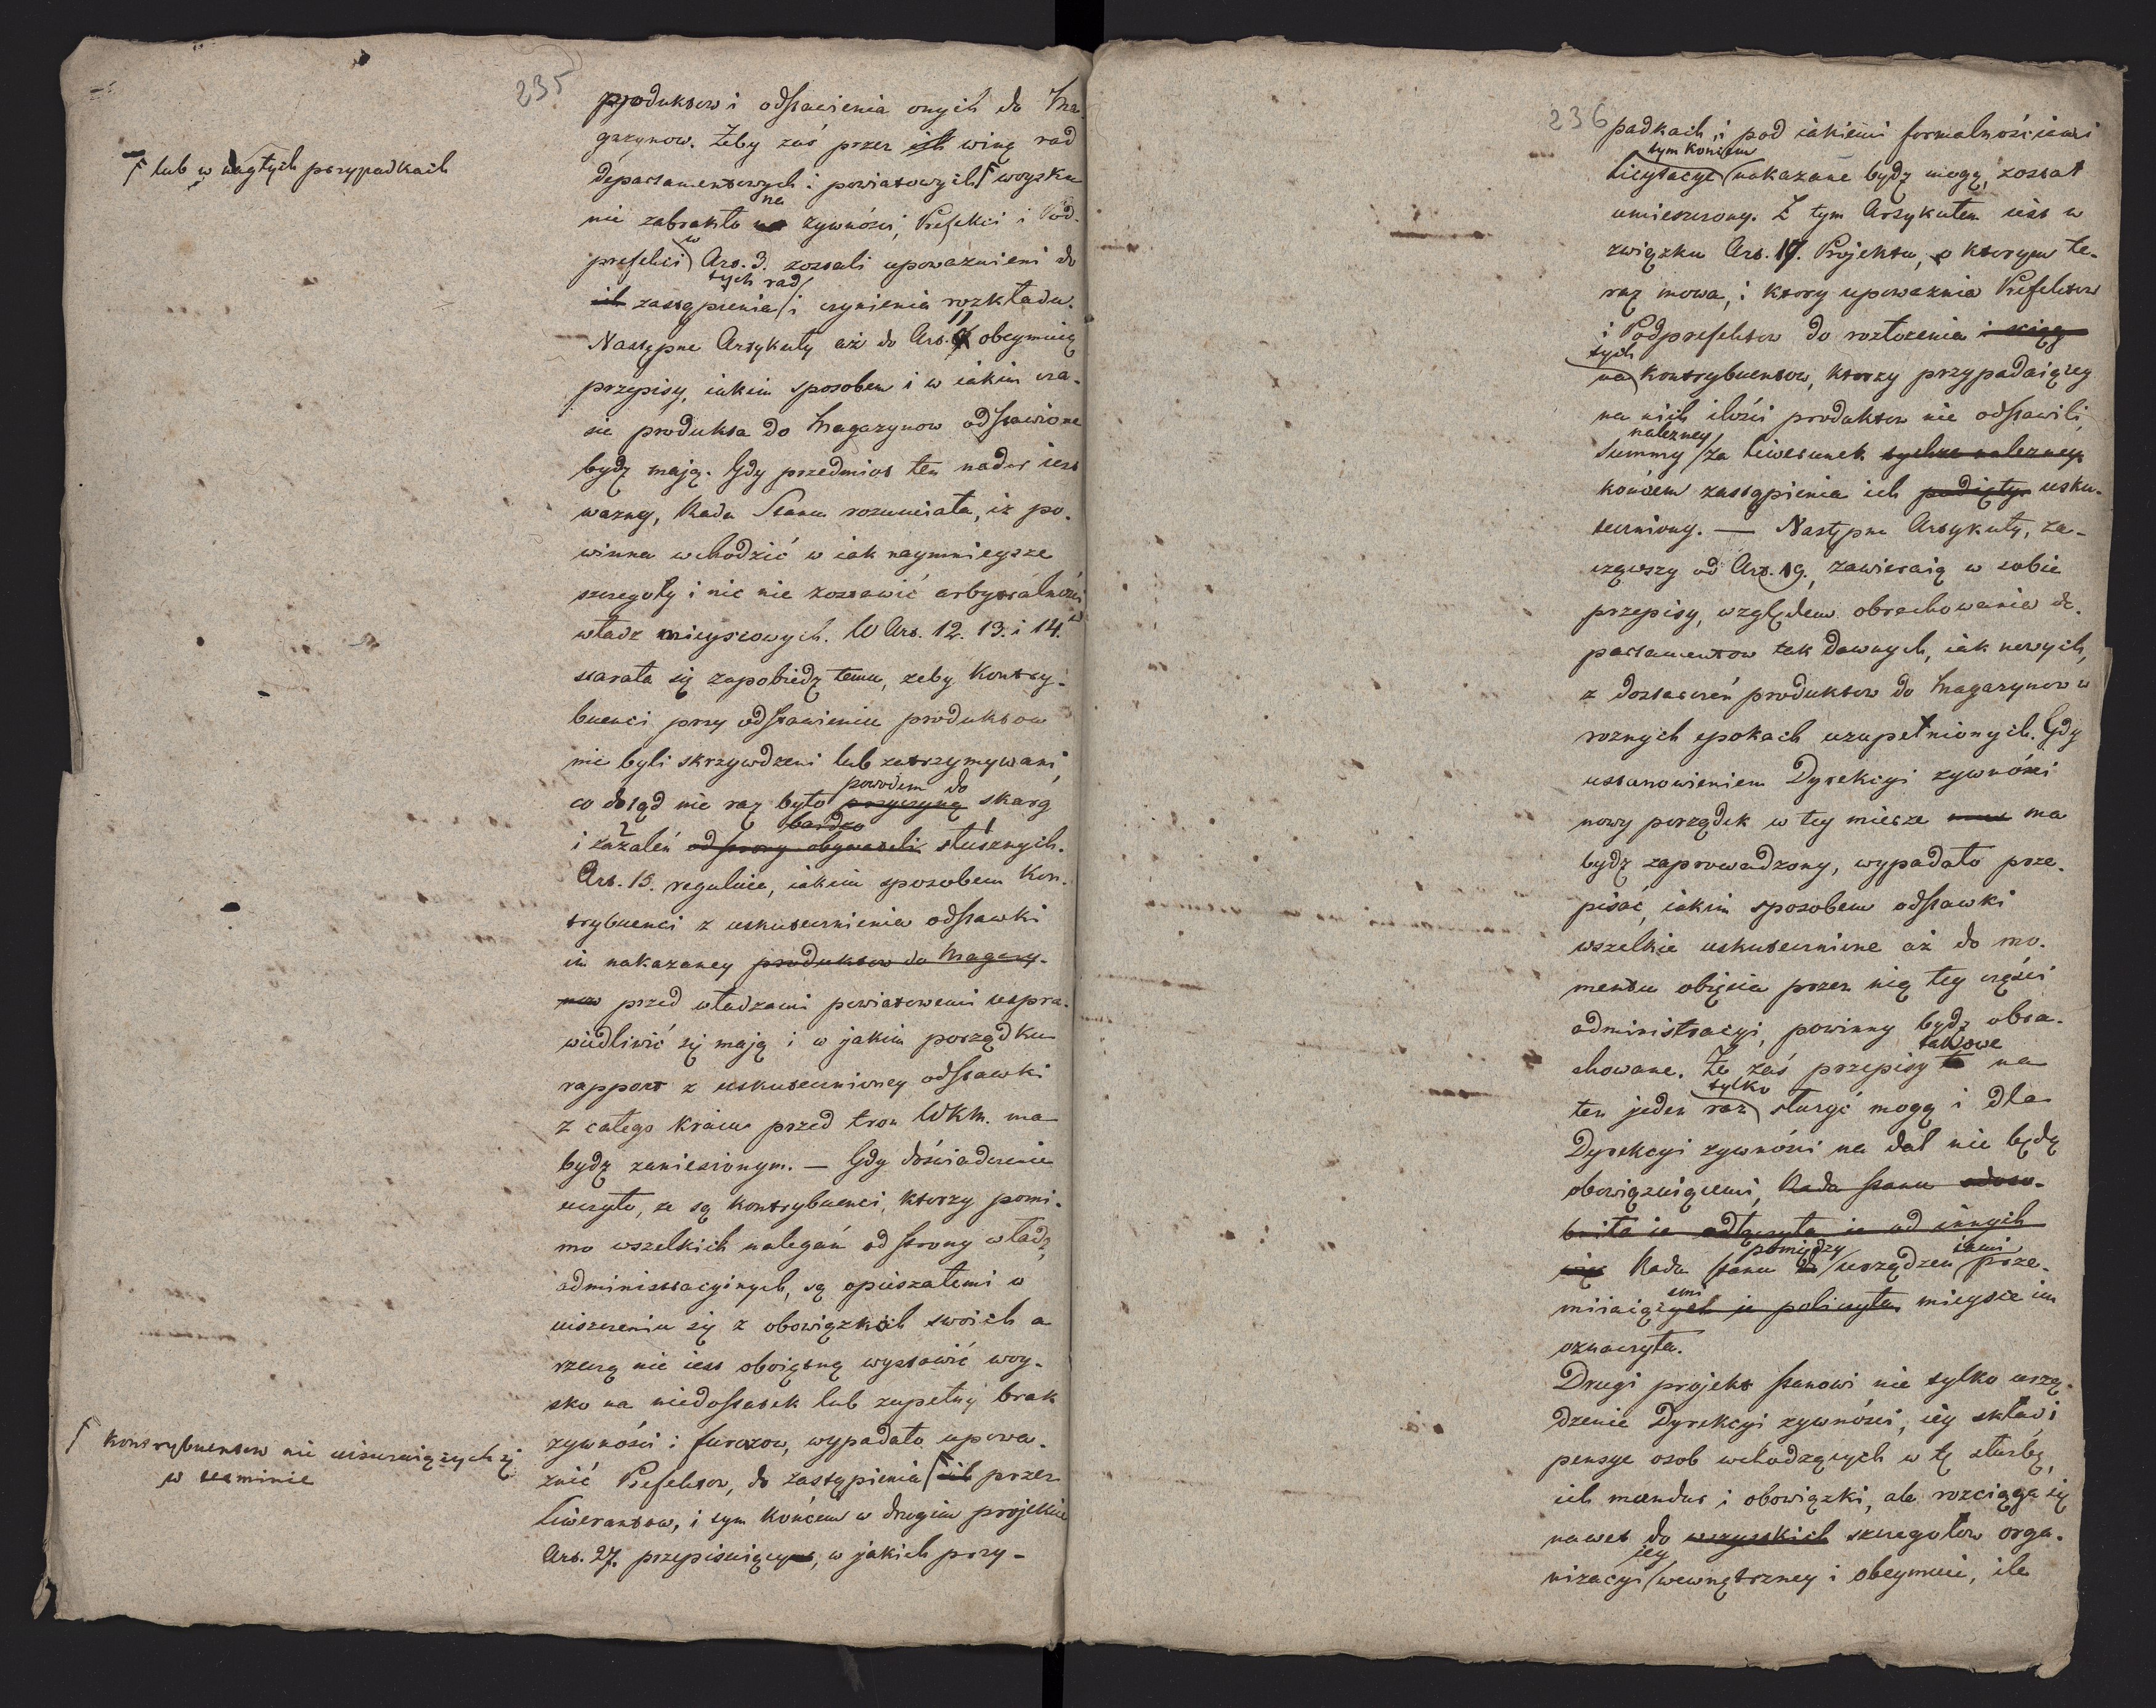 235
produktow i odstawienia onych do Ma-
gazynow. Żeby zaś przez ich winę rad
departamentowych i powiatowych ſ woysku
ſ lub w nagłych przypadkach
na
nie zabrakło na żywności, Prefekci i Pod-
w
prefekci Art. 3. zostali upoważnieni do
tych rad
ich zastąpienia i czynienia rozkładu.
11
Następne Artykuły aż do Art. obeymuią
przepisy, iakim sposobem i w iakim cza-
sie produkta do Magazynow odstawione
bydź mają. Gdy przedmiot ten nader iest
ważny, Rada Stanu rozumiała, iż po-
winna wchodzić w iak naymnieysze
szczegoły i nic nie zostawić arbitralności
władz mieyscowych. W Art. 12. 13. i 14.
starała się zapobiedz temu, żeby Kontry-
buenci przy odstawieniu produktow
nie byli skrzywdzeni lub zatrzymywani,
powodem do
co dotąd nie raz było przyczyną skarg
2 bardzo 1
i zażaleń od strony obywateli słusznych.
Art. 15. reguluie, iakim sposobem Kon-
trybuenci z uskutecznienia odstawki
im nakazaney produktow do Magazy-
now przed władzami powiatowemi uspra-
wiedliwić się mają i w jakim porządku
rapport z uskutecznioney odstawki
z całego Kraiu przed tron WKM. ma
bydź zaniesionym. — Gdy doświadczenie
uczyło, że są kontrybuenci, ktorzy pomi-
mo wszelkich nalegań od strony władz
administracyinych, są opieszałemi w
uiszczeniu się z obowiązkach swoich a
rzeczą nie iest oboiętną wystawić woy-
sko na niedostatek lub zupełny brak
żywności i furażow, wypadało upowa-
żnić Prefektow, do zastąpienia ſ ich przez
ſ kontrybuentow nie uiszczaiących się
w terminie
Liwerantow, i tym końcem w drugim projekcie
Art. 27. przepisuiący, w jakich przy-
236
padkach, i pod iakiemi formalnościami
tym końcem
Licytacye nakazane bydź mogą, został
umieszczony. Z tym Artykułem iest w
związku Art. 17. Projektu, o ktorym te-
raz mowa, i ktory upoważnia Prefektow
i Podprefektow do rozłożenia i ściąg
tych
na Kontrybuentow, ktorzy przypadaiącey
na nich ilości produktow nie odstawili,
należney
Summy za Liwerunek tychże należney
końcem zastąpienia ich podięty usku-
teczniony. — Następne Artykuły, za-
cząwszy od Art. 19., zawieraią w sobie
przepisy, względem obrachowania de-
partamentow tak dawnych, iak nowych,
z dostarczeń produktow do Magazynow w
rożnych epokach uzupełnionych. Gdy
ustanowieniem Dyrekcyi żywności
nowy porządek w tey mierze ma
bydź zaprowadzony, wypadało prze-
pisać, iakim sposobem odstawki
wszelkie uskutecznione aż do mo-
mentu obięcia przez nią tey części
administracyi, powinny bydź obra-
takowe
chowane. Że zaś przepisy te na
tylko
ten jeden raz służyć mogą i dla
Dyrekcyi żywności na dal nie będą
obowiązuiącemi, Rada stanu odoso-
bniła ie odłączyła ie od innych
pomiędzy iami
więc Rada stanu do urządzeń prze-
emi
miiaiących je policzyła mieysce im
oznaczyła.
Drugi projekt stanowi nie tylko urzą-
dzenie Dyrekcyi żywności, iey skład i
pensye osob wchodzących w tę służbę,
ich mundur i obowiązki, ale rozciąga się
nawet do wszystkich szczegołow orga-
iey
nizacyi wewnętrzney i obeymuie, ile